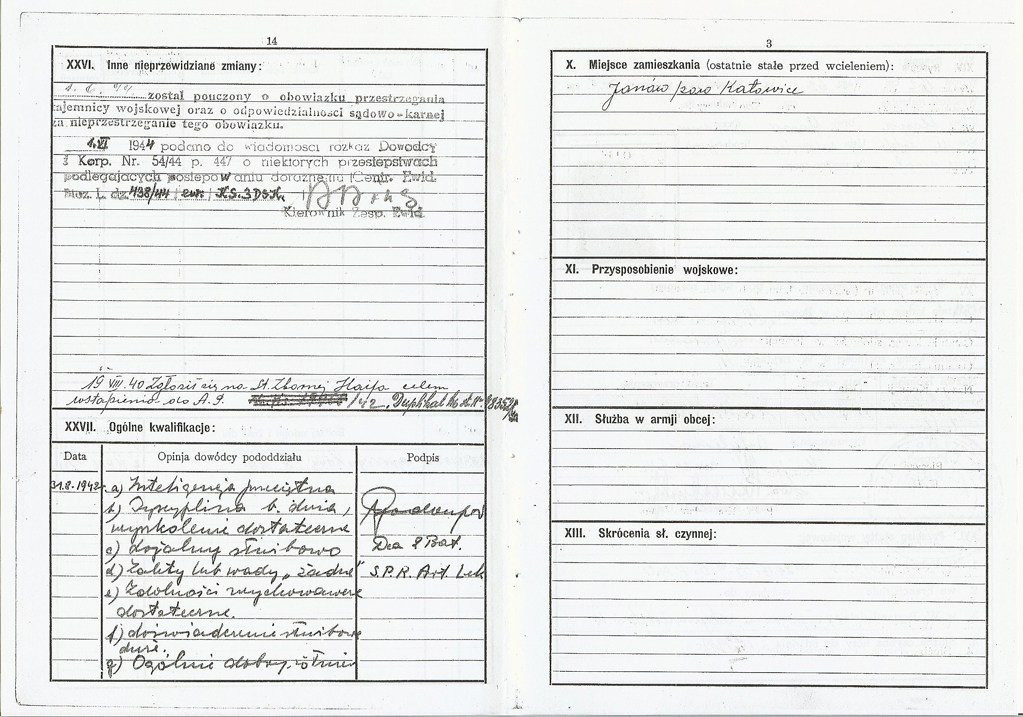 14
XXVI. Inne nieprzewidziane zmiany:
1. 6. 44 został pouczony o obowiązku przestrzegania
tajemnicy wojskowej oraz o odpowiedzialności sądowo-karnej
za nieprzestrzeganie tego obowiązku.
1.VI 1944 podano do wiadomości rozkaz Dowódcy
Korp. Nr. 54/44 p. 447 o niektórych przestępstwach
podlegających postępowaniu doraźnemu (Centr. Ewid.
L. dz. 438/44 ewr. K.S. 3 D.S.K.
Kierownik Zesp. Ewid.
19 VIII. 40 Zgłosił się na St. Zbornej Haifa celem
wstąpienia do A.P. /42. Duplikat
XXVII. Ogólne kwalifikacje:
Data Opinja dowódcy pododdziału Podpis
31.8.1942 a) Inteligencja przeciętna
b) Dyscyplina b. duża,
wyszkolenie dostateczne
c) lojalny służbowo
Dca 2 Bat.
d) Zalety lub wady „żadne"
S.P.R. Art. Lek
e) Zdolności wychowawcze
dostateczne.
f) doświadczenie służbowe
duże.
g) Ogólnie dobry żołnierz
3
X. Miejsce zamieszkania (ostatnie stałe przed wcieleniem):
Janów pow Katowice
XI. Przysposobienie wojskowe:
XII. Służba w armji obcej:
XIII. Skrócenia sł. czynnej: